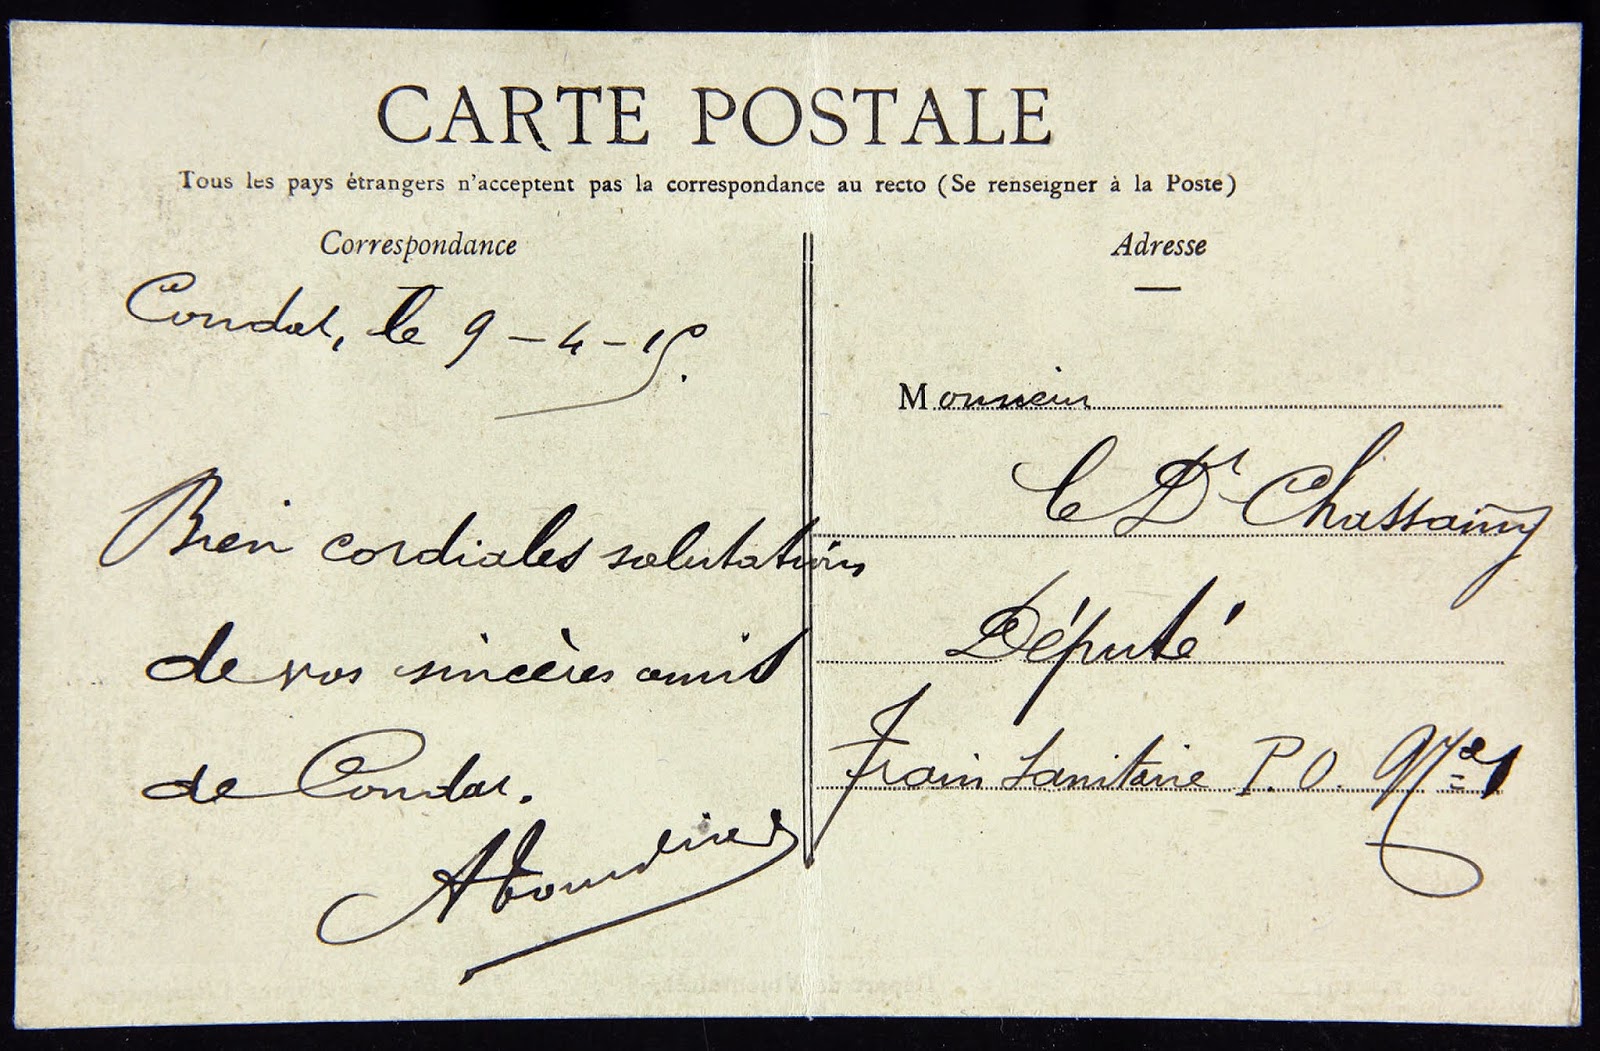 CARTE POSTALE
Tous les pays étrangers n'acceptent pas la correspondance au recto (Se renseigner à la Poste)
Correspondance
Condat, le 9-4-15.
Bien cordiales salutations
de vos sincères amis
de Condat.
Adresse
Monsieur
le Dr Chassaing
Député
Train Sanitaire P.O. No 1